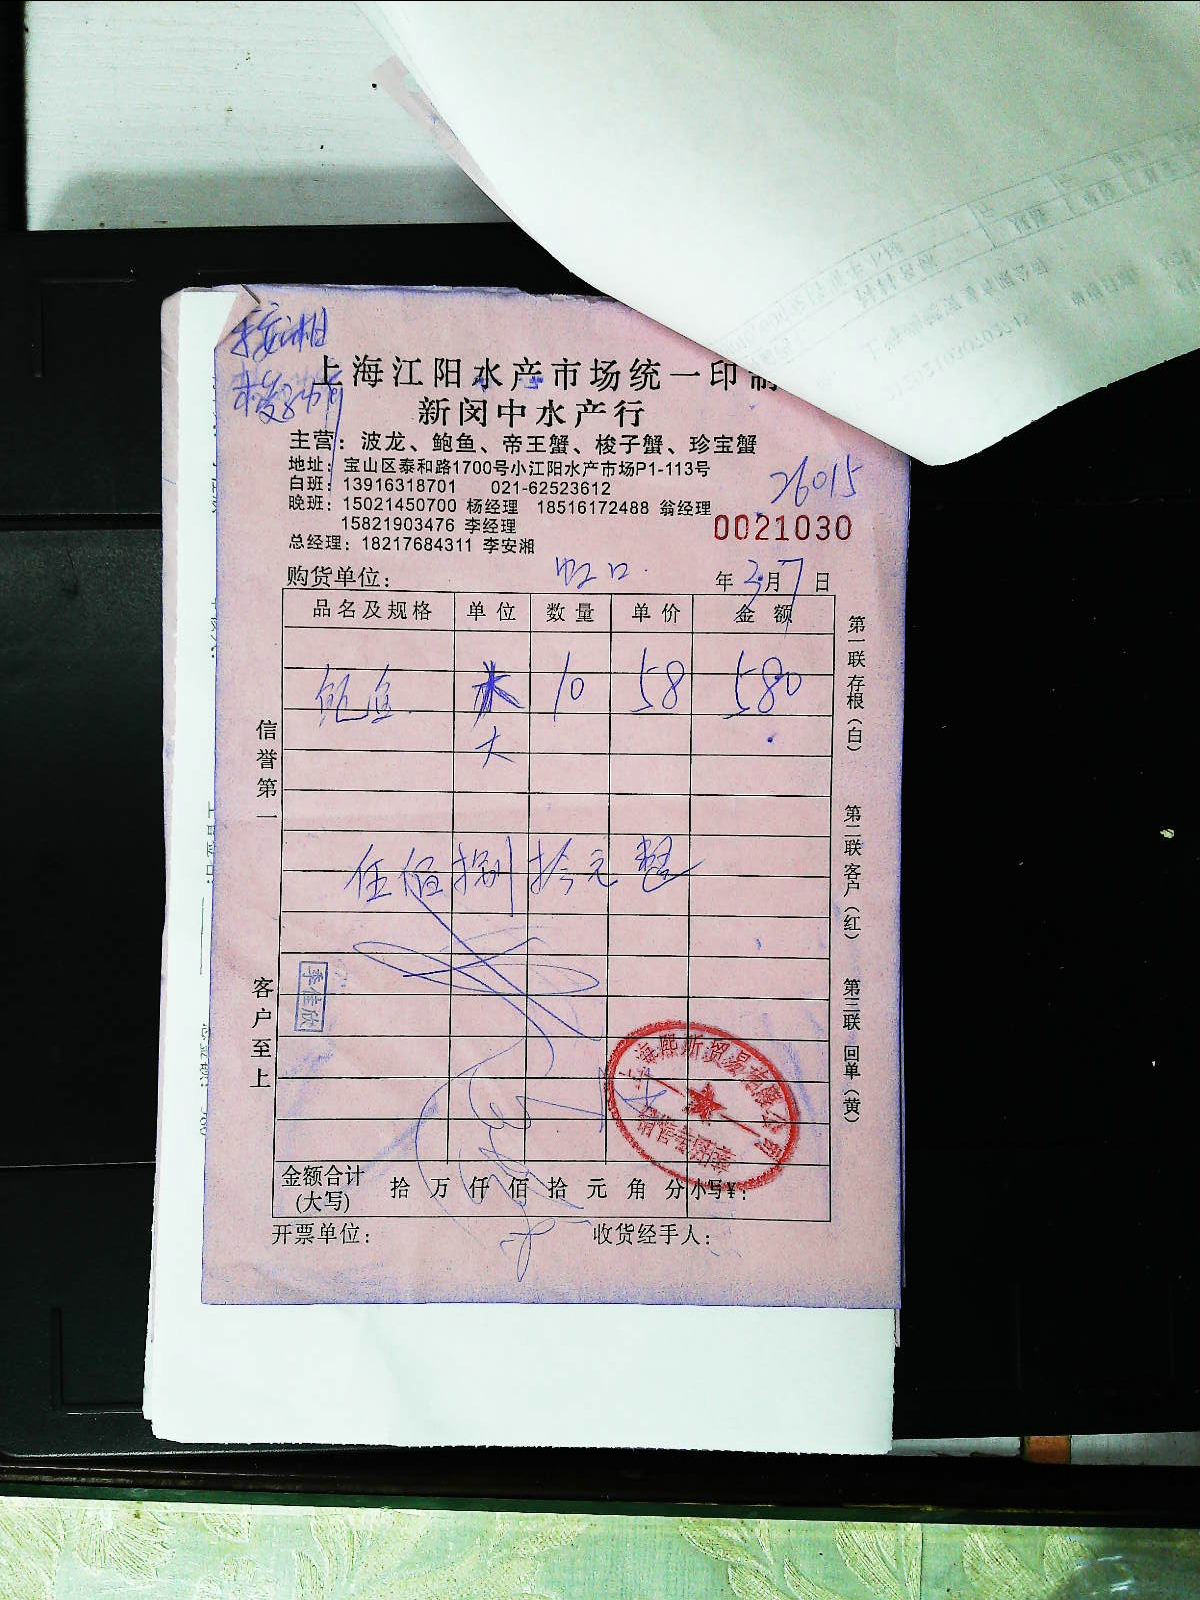 李安湘
上海江阳水产市场统一印制
新闵中水产行
主营：波龙、鲍鱼、帝王蟹、梭子蟹、珍宝蟹
地址：宝山区泰和路1700号小江阳水产市场P1-113号
白班：13916318701 021-62523612
26015
晚班：15021450700 杨经理 18516172488 翁经理
15821903476 李经理
0021030
总经理：18217684311 李安湘
购货单位： 虹口 年 3月7日
品名及规格 单位 数量 单价 金额
鲍鱼 10 58 580
大
伍佰捌拾元整
信誉第一
客户至上
第一联 存根（白）
第二联 客户（红）
第三联 回单（黄）
李佳欣
金额合计 拾 万 仟 佰 拾 元 角 分 小写￥：
(大写)
开票单位： 收货经手人：